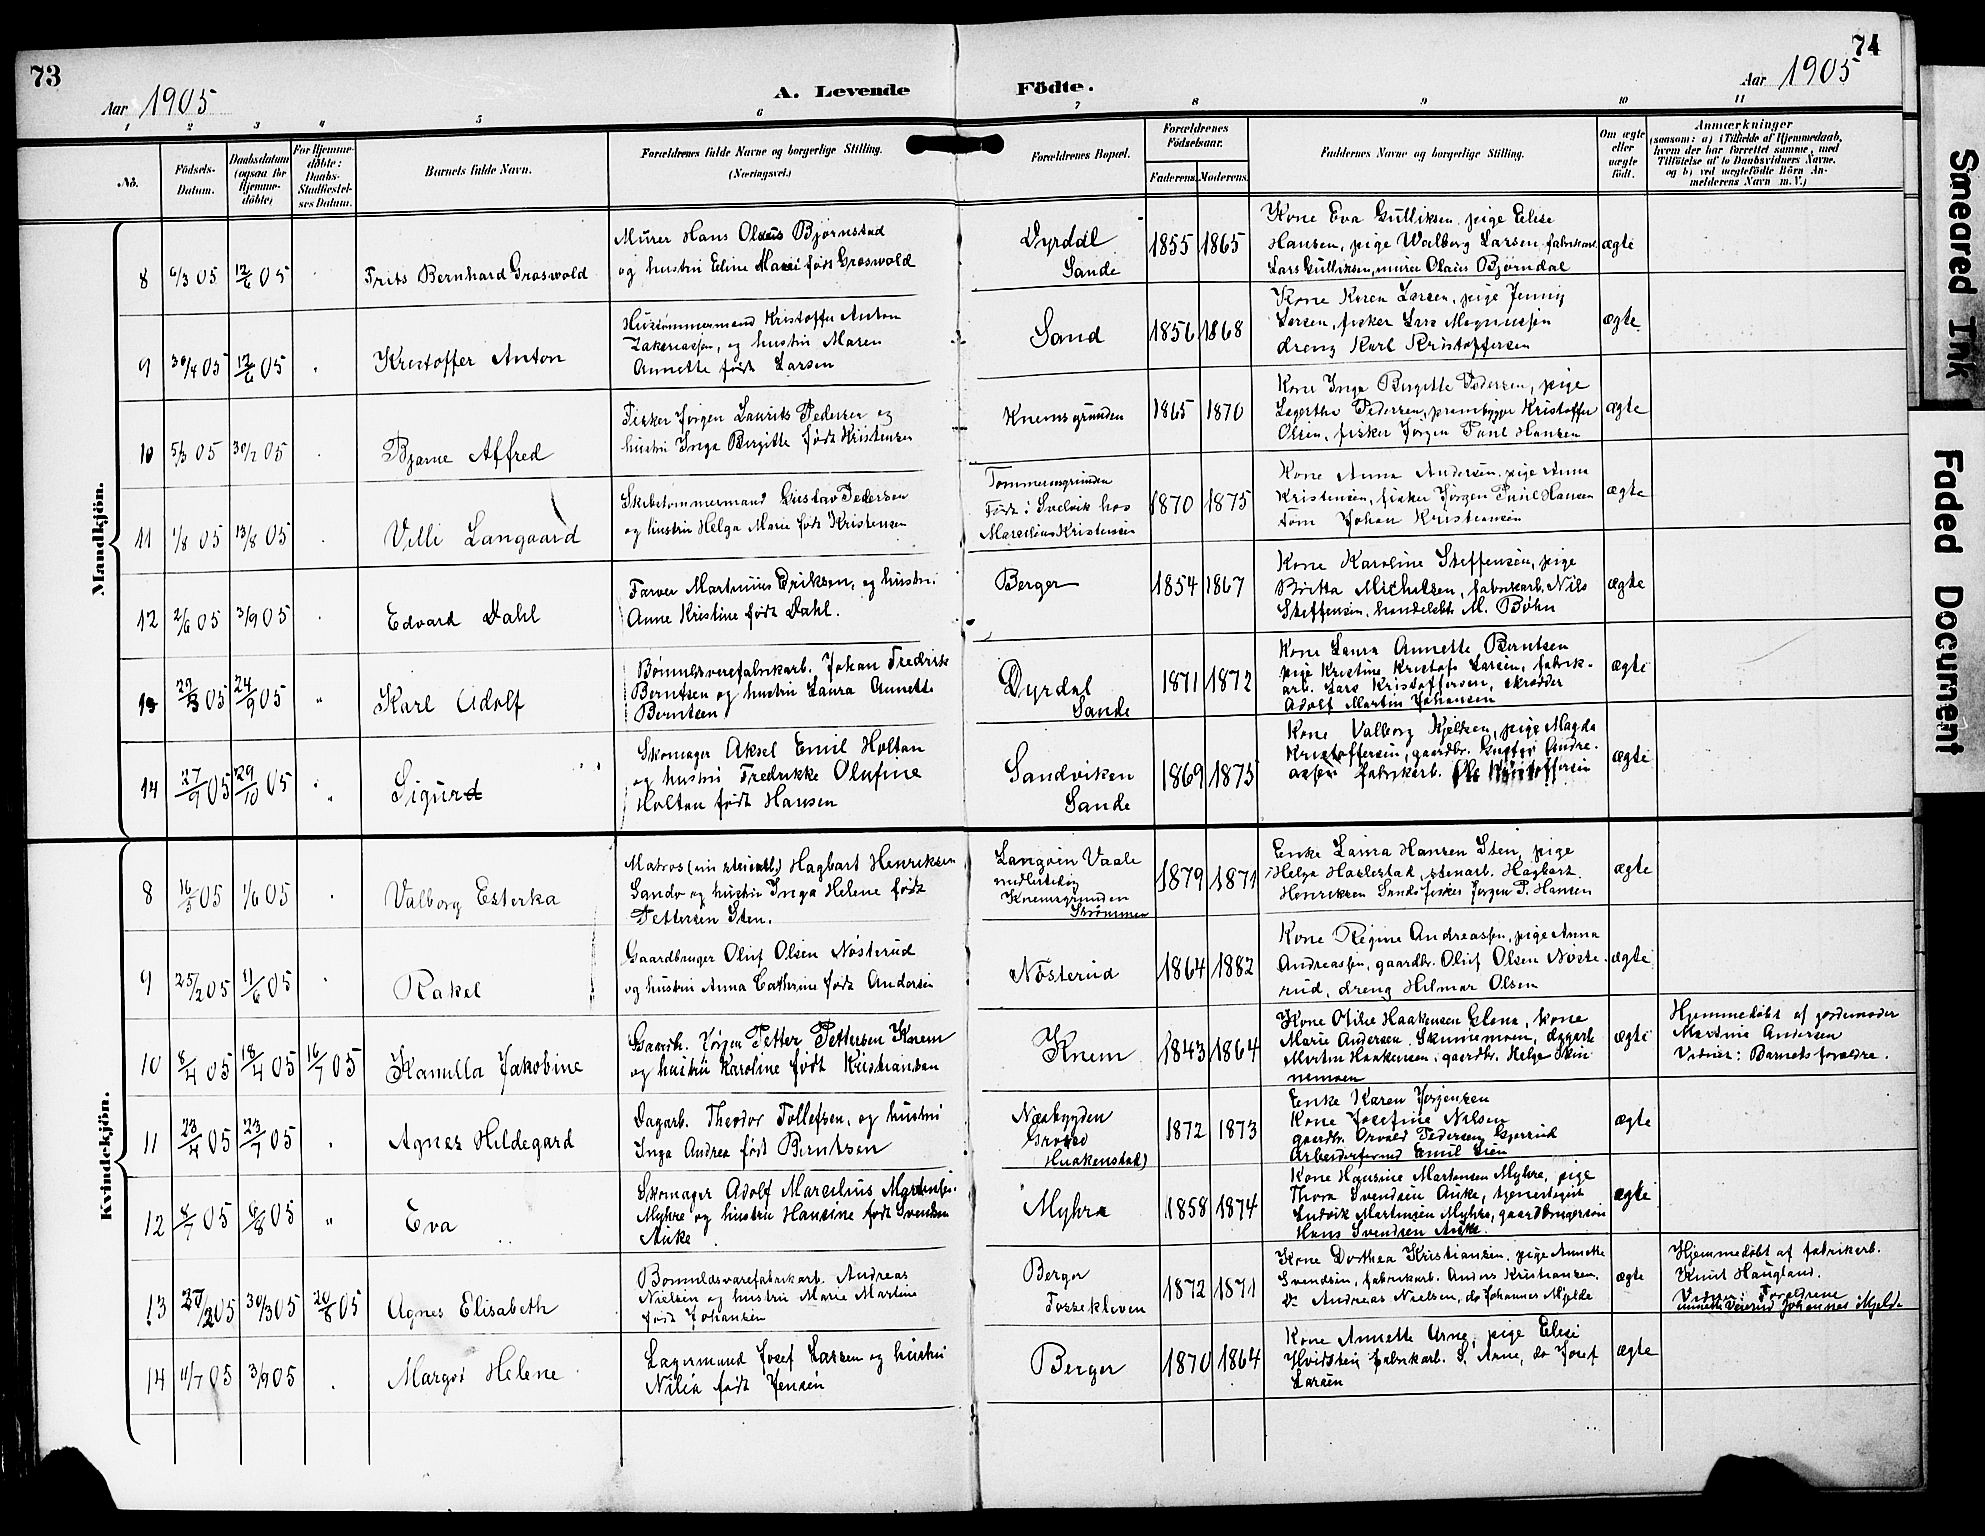 73
74
Aar 1905
A. Levende
Födte.
Aar 1905
1 2 3 4 5 6 7 8 9 10 11
No.
Födsels-
Datum.
Daabsdatum
(ogsaa for
Hjemme-
döbte)
For Hjemme-
döbte:
Daabs-
Stadfæstel-
ses Datum.
Barnets fulde Navn.
Forældrenes fulde Navne og borgerlige Stilling.
(Næringsvei.)
Forældrenes Bopæl.
Forældrenes
Födselsaar.
Faderens. Moderens.
Faddernes Navne og borgerlige Stilling.
Om ægte
eller
uægte
födt.
Anmærkninger
(saasom: a) i Tilfælde af Hjemmedaab,
hvem der har forrettet samme, med
Tilföielse af to Daabsvidners Navne,
og b) ved uægtefödte Börn An-
melderens Navn m. V.)
Mandkjön.
8 6/3 05 12/6 05 Frits Bernhard Groswold
Murer Hans Olaus Bjørnstad
og hustru Eline Marie født Groswold
Dyrdal
Sande
1855 1865
Kone Eva Gulliksen, pige Elise
Hansen, pige Walborg Larsen, fabrikarb.
Lars Gulliksen, murer Olaus Bjørndal
ægte
9 30/4 05 12/6 05 Kristoffer Anton
Hustømmermand Kristoffer Anton
Zakariassen, og hustru Maren
Annette født Larsen
Sand
1856 1868
Kone Karen Larsen, pige Jenny
Larsen, fisker Lars Magnussen
dreng Karl Kristoffersen
ægte
10 5/3 05 30/7 05 Bjarne Alfred
Fisker Jørgen Laurits Pedersen og
hustru Inga Birgitte født Kristensen
Knemsgrunden
1865 1870
Kone Inga Birgitte Pedersen, pige
Lagertha Pedersen, prambygger Kristoffer
Olsen, fisker Jørgen Paul Hansen
ægte
11 1/8 05 13/8 05 Villi Langaard
Skibstømmermand Gustav Pedersen
og hustru Helga Marie født Kristensen
Tommerasgrunden
Født i Svelvik hos
Marcelius Kristensen
1870 1875
Kone Anna Andersen, pige Anna
Kristensen, fisker Jørgen Paul Hansen
tøm Johan Kristiansen
ægte
12 2/6 05 3/9 05 Edvard Dahl
Farver Martinius Eriksen, og hustru
Anne Kristine født Dahl.
Berger
1854 1867
Kone Karoline Steffensen, pige
Britta Michelsen, fabrikarb. Nils
Steffensen, handelsbt. M. Bøhn
ægte
13 22/3 05 24/9 05 " Karl Adolf
Bomuldsvarefabrikarb. Johan Fredrik
Berntsen og hustru Laura Annette
Berntsen
Dyrdal
Sande
1871 1872
Kone Laura Annette Berntsen
pige Kristine Kristofa Larsen, fabrik-
arb. Lars Kristoffersen, skrædder
Adolf Martin Johansen
ægte
14 27/9 05 29/10 05 " Sigurd
Skomager Aksel Emil Holtan
og hustru Fredrikke Olufine
Holtan født Hansen
Sandviken
Sande
1869 1875
Kone Valborg Kjelsen, pige Magda
Kristoffersen, gaardbr. Gustav Andre-
assen fabrikarb. Kristoffersen
ægte
Kvindekjön.
8 16/5 05 1/6 05 Valborg Esterka
Matros (nu stenarb.) Hagbart Henriksen
Sando og hustru Inga Helene født
Pettersen Sten.
Langøen Vaale
midlertidig
Knemsgrunden
Strømmen
1879 1871
Enke Laura Hansen Sten, pige
Helga Haslestad, stenarb. Hagbart
Henriksen Sando fisker Jørgen P. Hansen
ægte
9 25/2 05 11/6 05 Rakel
Gaardbruger Oluf Olsen Nøsterud
og hustru Anna Cathrine født Andersen
Nøsterud
1864 1882
Kone Regine Andreassen, pige Anna
Andreassen, gaardbr. Oluf Olsen Nøste-
rud, dreng Hilmar Olsen
ægte
10 8/4 05 18/4 05 16/7 05 Kamilla Jakobine
Gaardb. Jørgen Petter Pettersen Knem
og hustru Karoline født Kristiansen
Knem
1843 1864
Kone Otilie Haakensen Elena, kone
Marie Andersen Skinnemoen, dagarb.
Martin Haakensen, gaardbr. Helge Skin
nemoen
ægte
Hjemmedøbt af jordemoder
Martine Andersen
Vidner: Barnets forældre.
11 23/4 05 23/7 05 Agnes Hildegard
Dagarb. Theodor Tollefsen, og hustru
Inga Andrea født Berntsen
Næsbygden
Haakenstad)
1872 1873
Enke Karen Jørgensen
Kone Josefine Nilsen
gaardbr. Orvald Pedersen Gjerrud
Arbeiderformd Emil Lien
ægte
12 8/7 05 6/8 05 " Eva
Skomager Adolf Marcelius Martinsen
Myhre og hustru Hansine født Svendsen
Auke
Myhra
1858 1874
Kone Hansine Martensen Myhre, pige
Thora Svendsen Auke, tjenestegut
Ludvik Martensen Myhre, gaardbrugersøn
Hans Svendsen Auke.
ægte
13 27/2 05 30/3 05 20/8 05 Agnes Elisabeth
Bomuldsvarefabrikarb. Andreas
Nielsen og hustru Marie Martine
født Johansen
Berger
Fossekleven
1872 1871
Kone Dorthea Kristiansen, pige Annette
Svendsen, fabrikarb. Anders Kristiansen,
Do Andreas Nielsen, do Johannes Mjelde
ægte
Hjemmedøbt af fabrikarb.
Knut Haugland.
Vidner: Forældrene
Annette Veierud Johannes Mjelde
14 11/7 05 3/9 05 Margot Helene
Lagermand Josef Larsen og hustru
Nilia født Jensen
Berger
1870 1864
Kone Annette Arne, pige Elise
Hvitsten fabrikarb. S. Arne, do Josef
Larsen
ægte
Smeared Ink
Faded Document